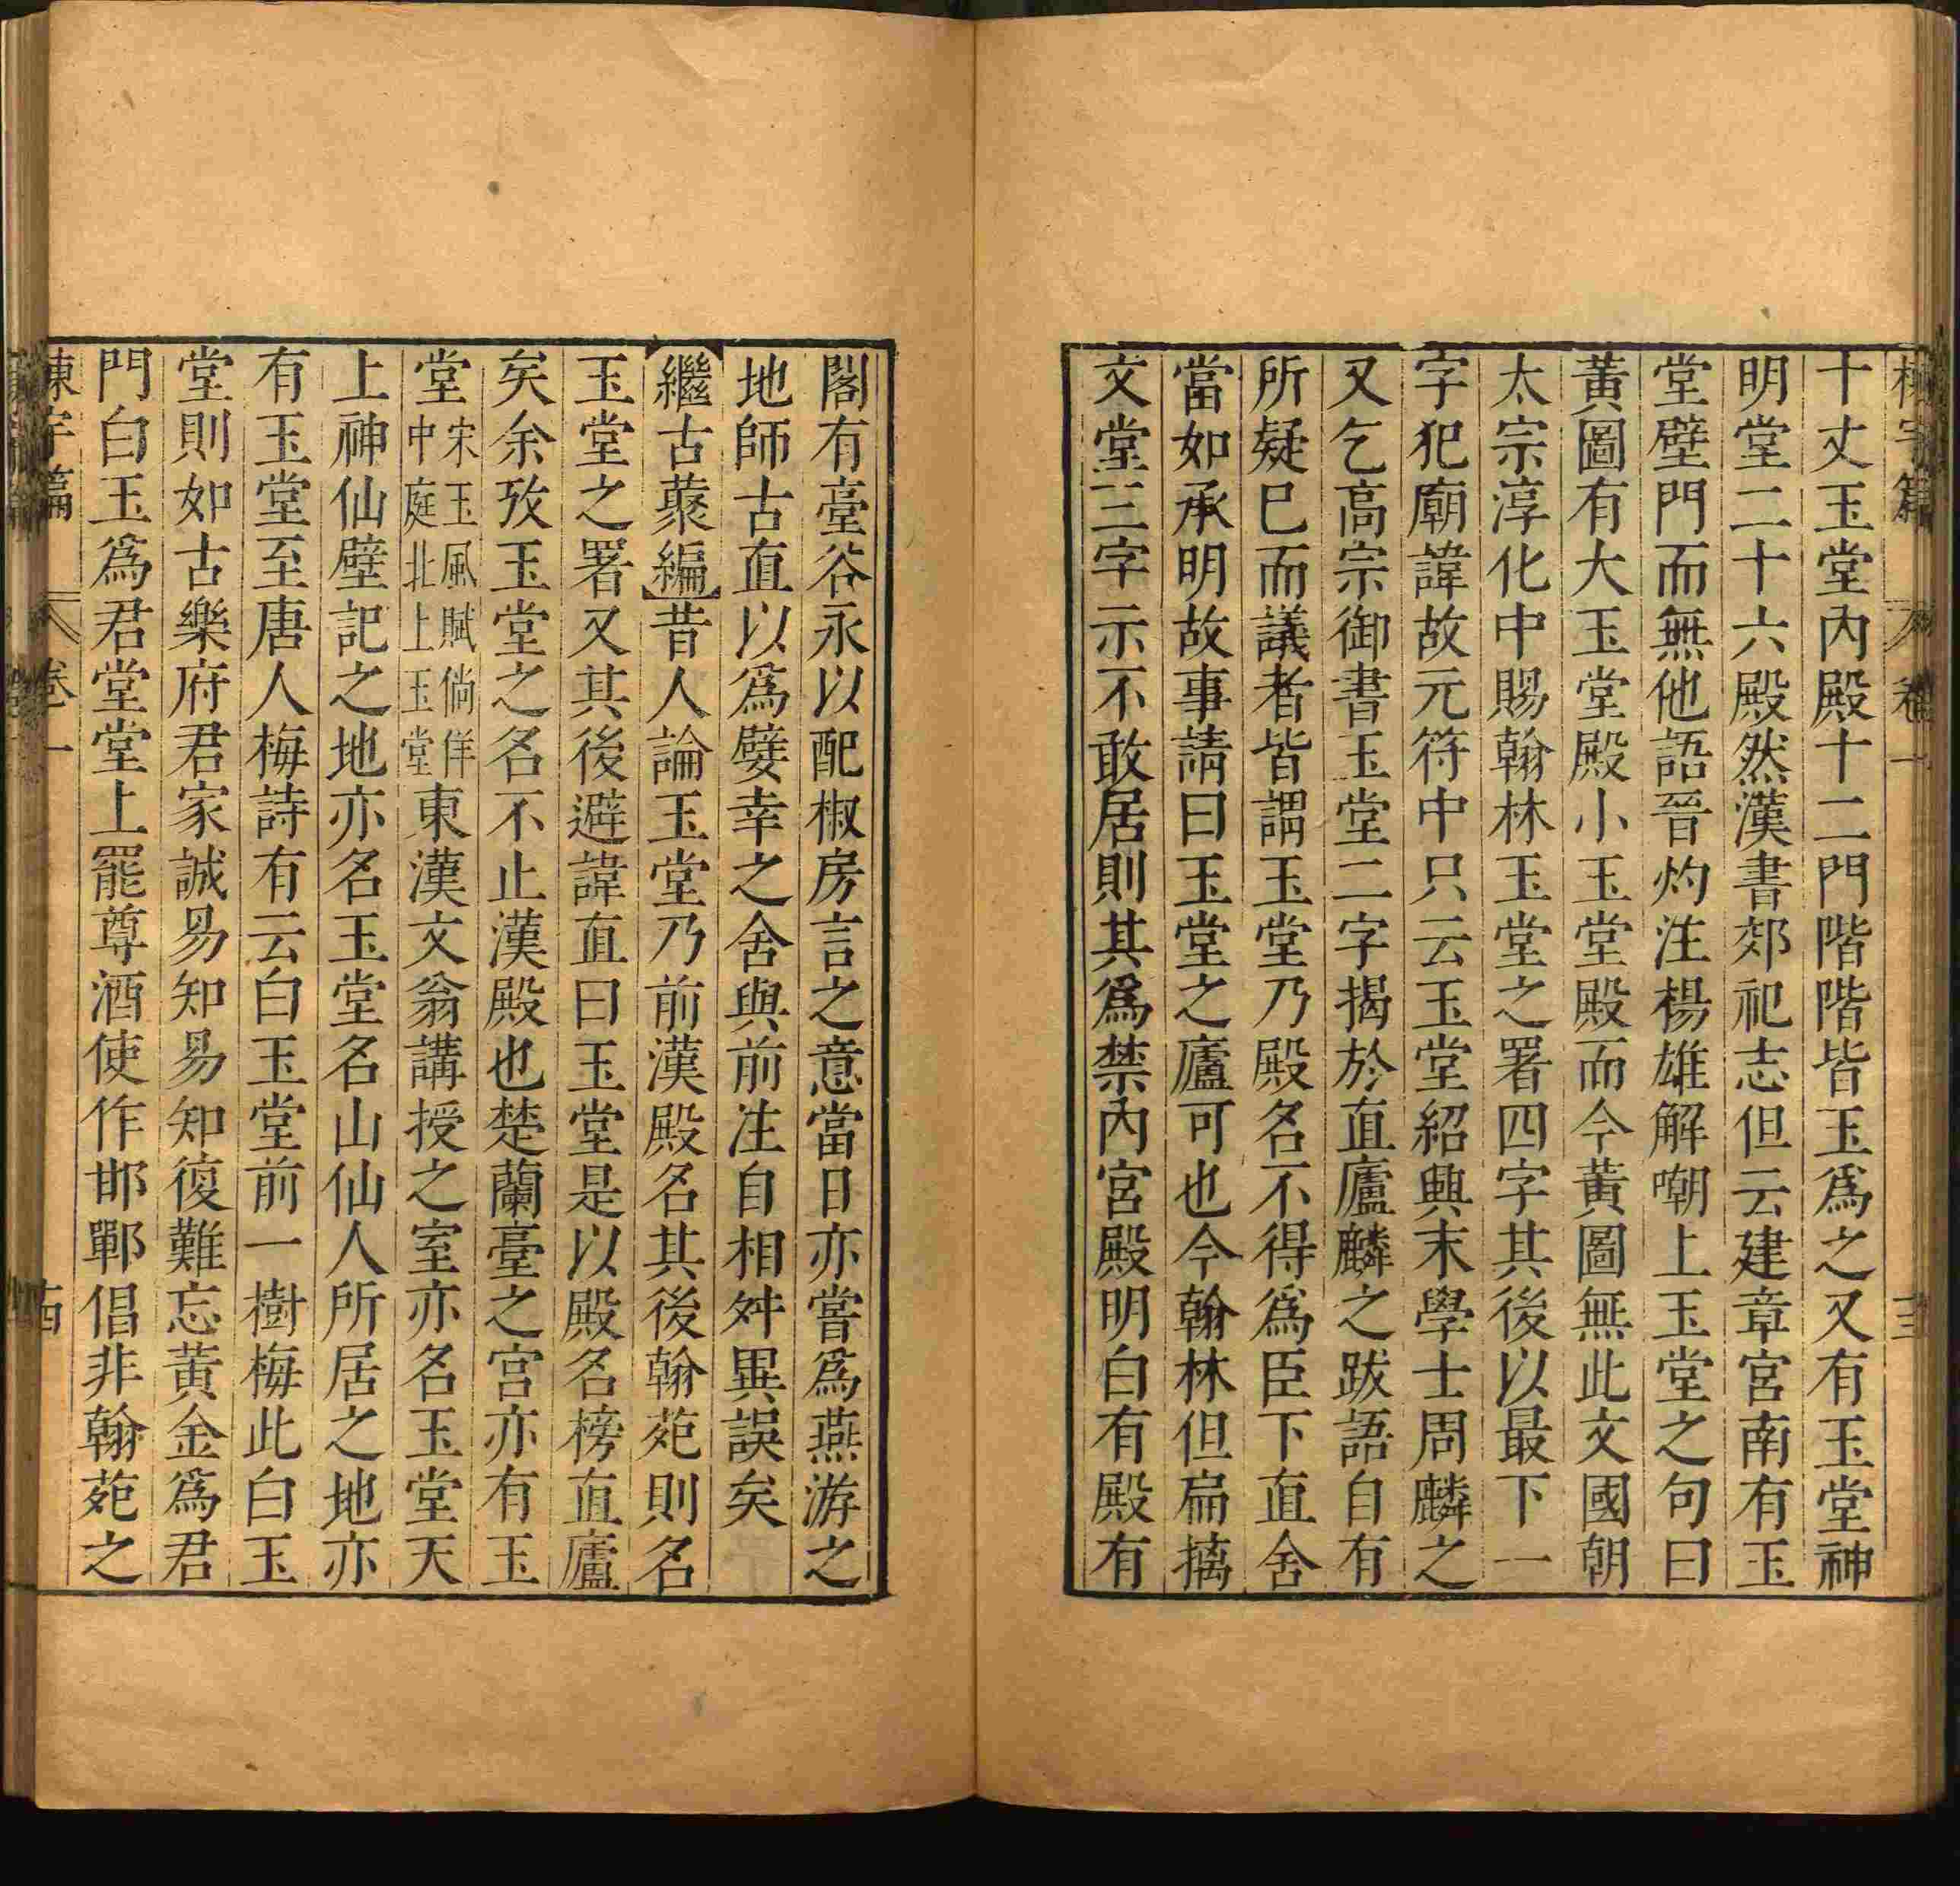 棟宇篇 卷一 十三
十丈玉堂內殿十二門階階皆玉爲之又有玉堂神
明堂二十六殿然漢書郊祀志但云建章宮南有玉
堂璧門而無他語晉灼注楊雄解嘲上玉堂之句曰
黃圖有大玉堂殿小玉堂殿而今黃圖無此文國朝
太宗淳化中賜翰林玉堂之署四字其後以最下一
字犯廟諱故元符中只云玉堂紹興末學士周麟之
又乞高宗御書玉堂二字揭於直廬麟之跋語自有
所疑巳而議者皆謂玉堂乃殿名不得爲臣下直舍
當如承明故事請曰玉堂之廬可也今翰林但扁摛
文堂三字示不敢居則其爲禁內宮殿明白有殿有
閣有臺谷永以配椒房言之意當日亦嘗爲燕游之
地師古直以爲嬖幸之舍與前注自相舛異誤矣
繼古藂編昔人論玉堂乃前漢殿名其後翰苑則名
玉堂之署又其後避諱直曰玉堂是以殿名榜直廬
矣余攷玉堂之名不止漢殿也楚蘭臺之宮亦有玉
堂宋玉風賦倘佯中庭北上玉堂東漢文翁講授之室亦名玉堂天
上神仙壁記之地亦名玉堂名山仙人所居之地亦
有玉堂至唐人梅詩有云白玉堂前一樹梅此白玉
堂則如古樂府君家誠易知易知復難忘黃金爲君
門白玉爲君堂堂上罷尊酒使作邯鄲倡非翰苑之
棟宇篇 卷一 十四